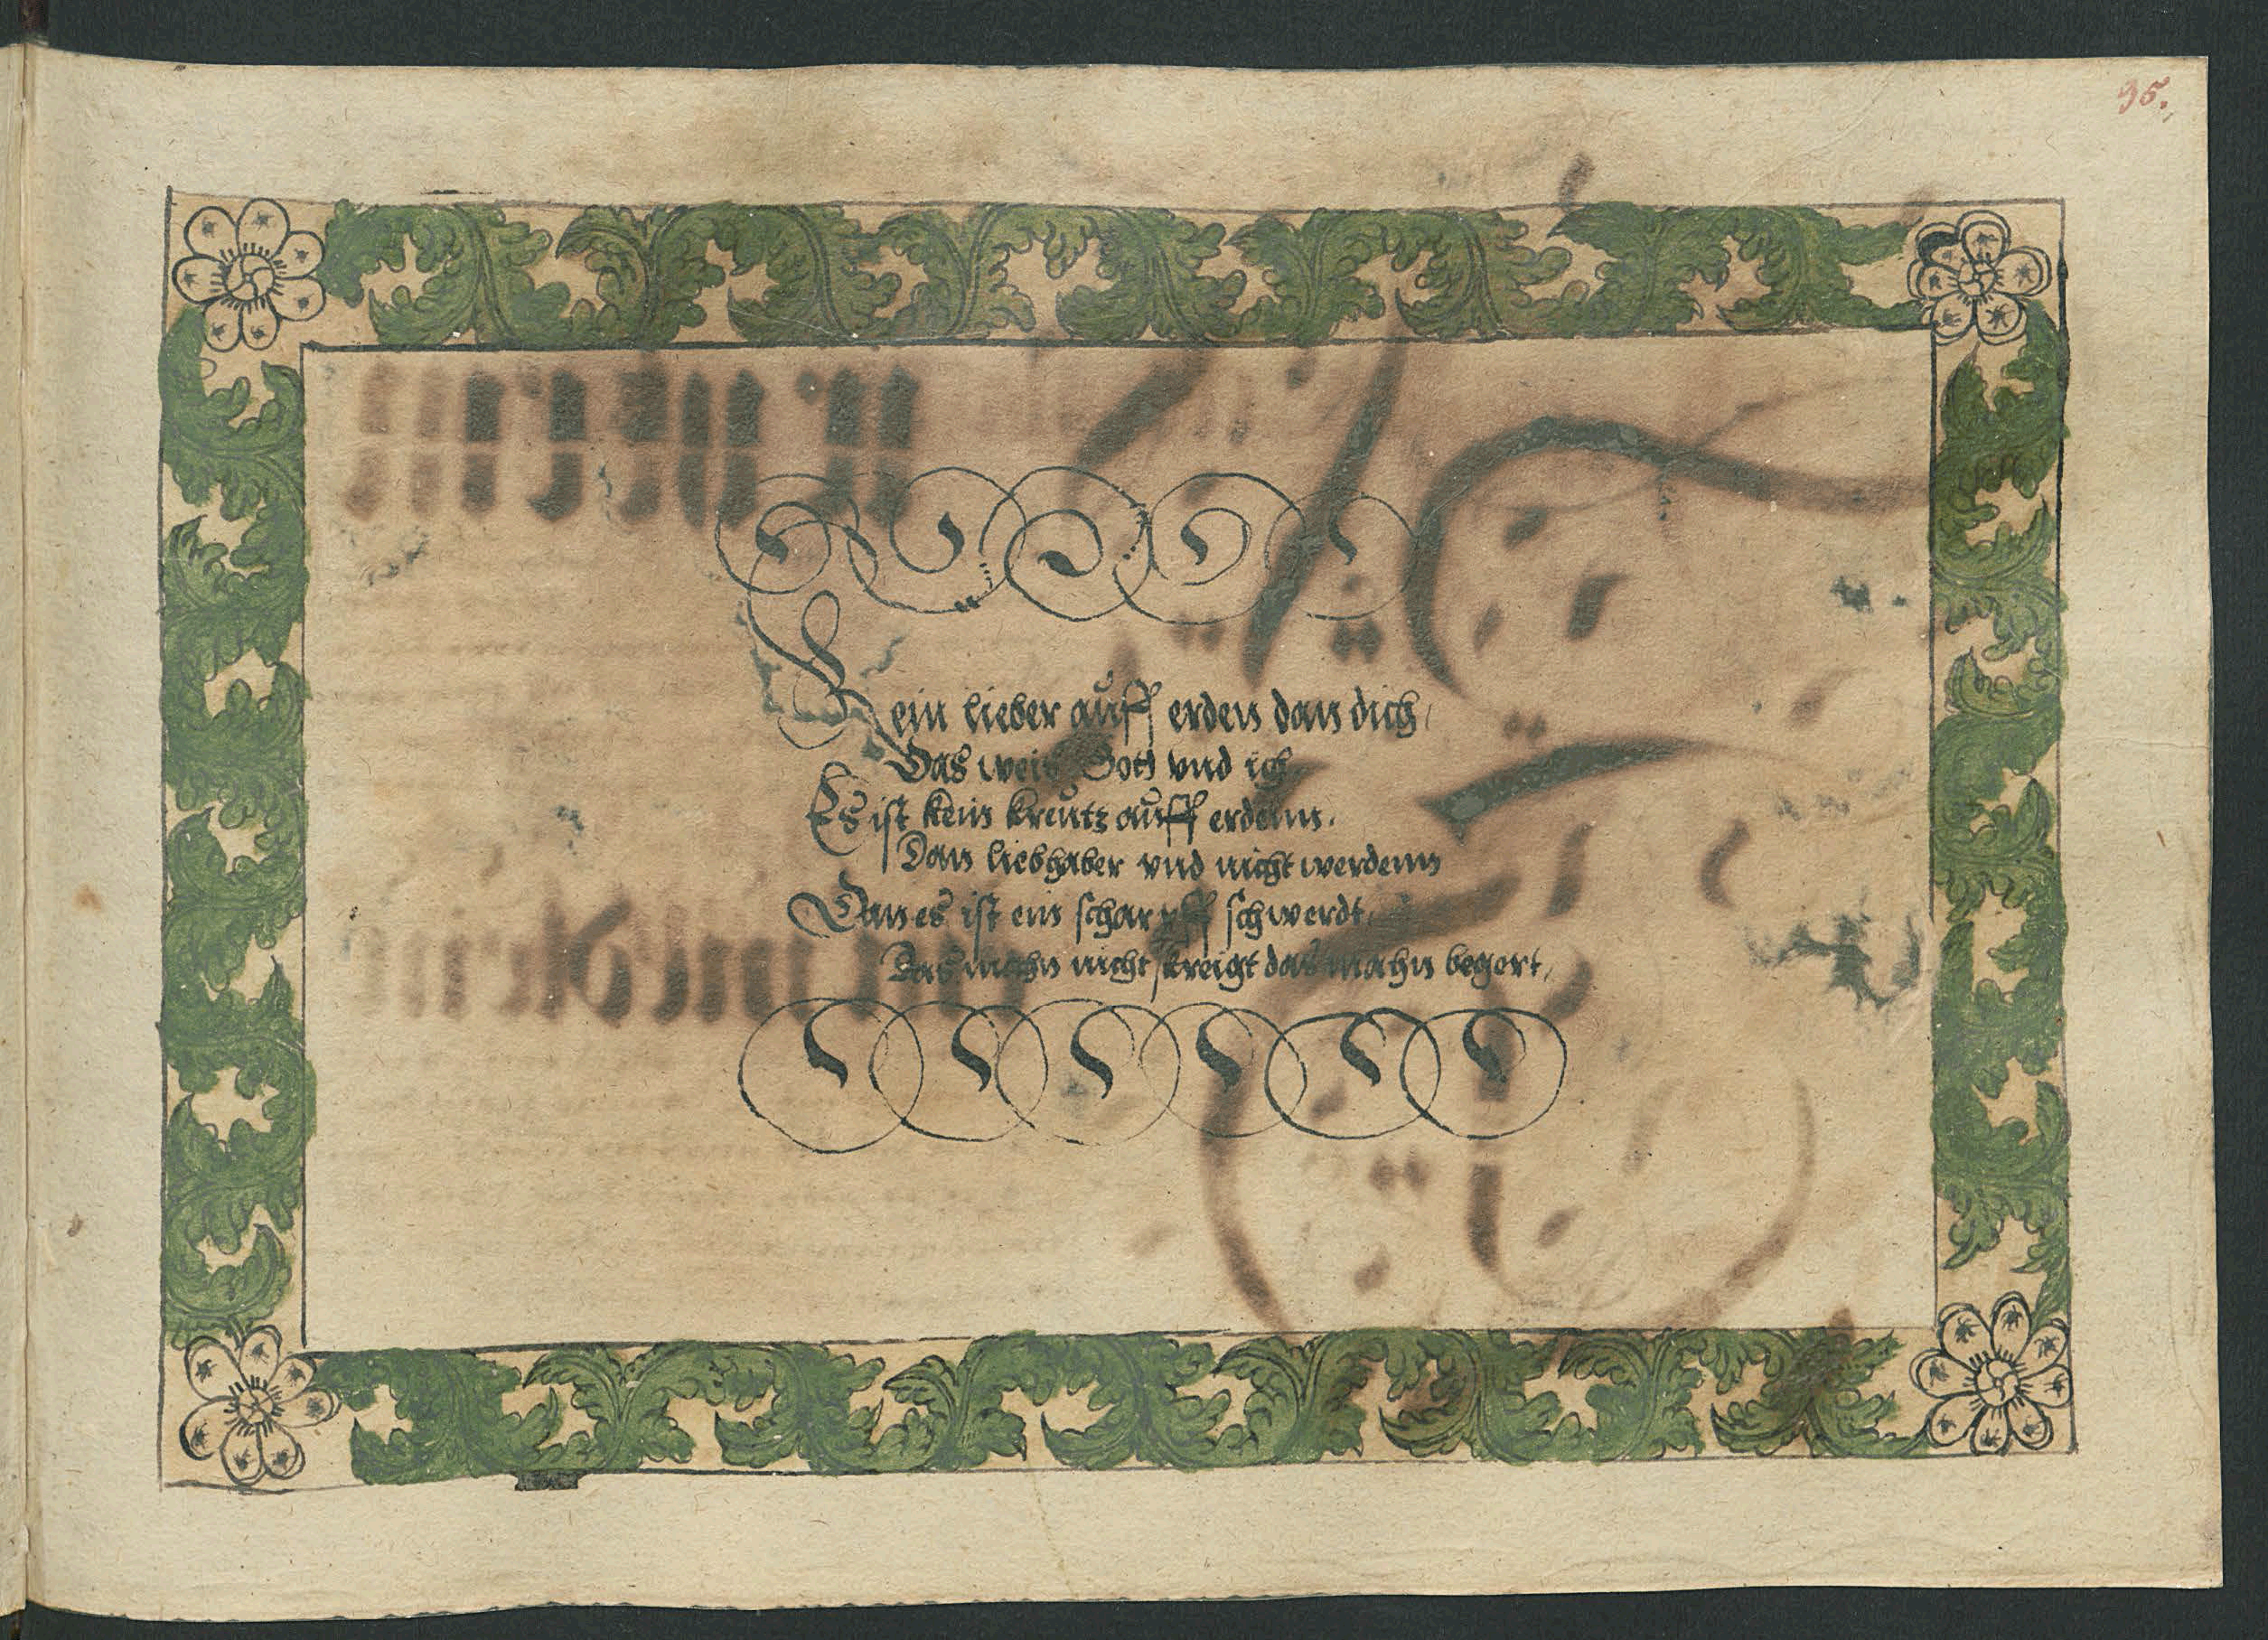 95.
Kein lieber auff erden dan dich,
Das weis Gott vnd ich
Es ist kein kreutz auff erdenn.
Dan liebhaber vnd nicht werdenn
Dan es ist ein scharpff schwerdt,
Das mahn nicht kreigt das mahn begert,